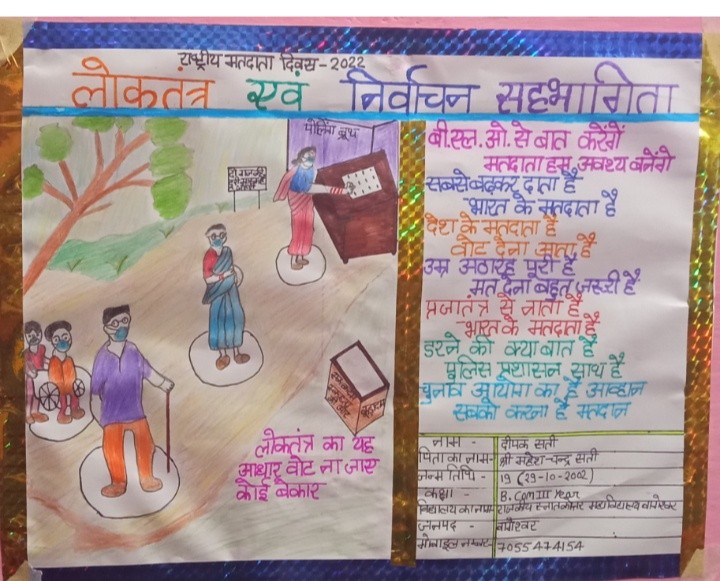 राष्ट्रीय मतदाता दिवस-2022
लोकतंत्र एवं निर्वाचन सहभागिता
पोलिंग बूथ
दो गज दूरी
बी.एल.ओ. से बात करेंगें
मतदाता हम अवश्य बनेंगे
सबसे बढ़कर दाता है
भारत के मतदाता है
देश के मतदाता है
वोट देना आता है
उम्र अठारह पूरी है
मत देना बहुत ज़रूरी है
प्रजातंत्र से नाता है
भारत के मतदाता है
डरने की क्या बात है
पुलिस प्रशासन साथ है
चुनाव आयोग का है आव्हान
सबको करना है मतदान
लोकतंत्र का यह
आधार वोट ना जाए
कोई बेकार
नाम - दीपक सती
पिता का नाम- श्री महेश-चन्द्र सती
जन्म तिथि - 19 (29-10-2002)
कक्षा - B. Com III Year
विद्यालय का नाम- राजकीय स्नातकोत्तर महाविद्यालय बागेश्वर
जनपद - बागेश्वर
मोबाइल नम्बर- 7055474154